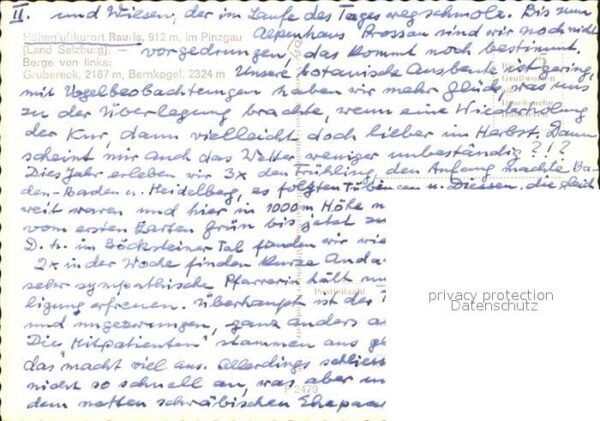 II. und Wiesen, der im Laufe des Tages wegschmolz. Bis zum
Alpenhaus Prossau sind wir noch nicht
Höhenluftkurort Rauris, 912 m, im Pinzgau
(Land Salzburg). –
vorgedrungen, das kommt noch bestimmt.
Berge von links:
Grubereck, 2167 m, Bernkogel, 2324 m
Unsere botanische Ausbeute ist gering,
mit Vogelbeobachtungen haben wir mehr Glück, was uns
zu der Überlegung brachte, wenn eine Wiederholung
der Kur, dann vielleicht doch lieber im Herbst. Dann
scheint mir auch das Wetter weniger unbeständig?!?
Dies Jahr erleben wir 3x den Frühling, den Anfang machte Ba-
den-Baden u. Heidelberg, es folgten Tübingen u. Diessen, die gleich
weit waren und hier in 1000 m Höhe
vom ersten zarten Grün bis jetzt
D. h. im Böcksteiner Tal fanden wir
2x in der Woche finden kurze Anda
sehr sympathische Pfarrerin hält
ligung erfreuen. Überhaupt ist der
und ungezwungen, ganz anders
Die "Mitpatienten" stammen aus
das macht viel aus. Allerdings schliess
nicht so schnell an, was aber
dem netten schwäbischen Ehepaa
Postleitzahl
P 2479
privacy protection
Datenschutz